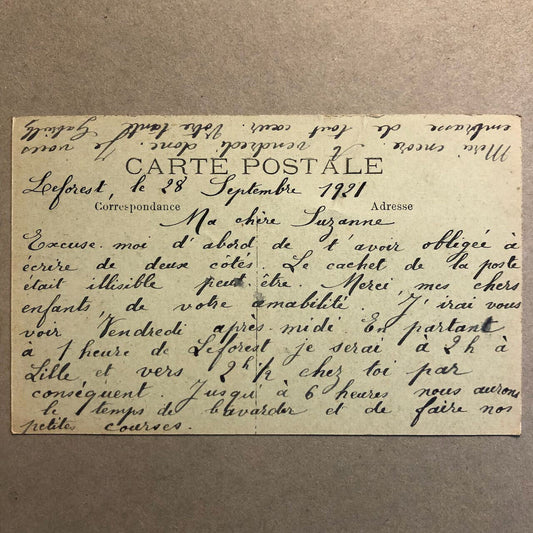 CARTE POSTALE
Leforest, le 28 Septembre 1921
Correspondance Adresse
Ma chère Suzanne
Excuse-moi d'abord de t'avoir obligée à
écrire de deux côtés. Le cachet de la poste
était illisible peut-être. Merci, mes chers
enfants, de votre amabilité. J'irai vous
voir Vendredi après-midi. En partant
à 1 heure de Leforest je serai à 2h à
Lille et vers 2h 1/2 chez toi par
conséquent. Jusqu'à 6 heures nous aurons
le temps de bavarder et de faire nos
petites courses.
Merci encore. A vendredi donc. Je vous
embrasse de tout cœur. Votre tante